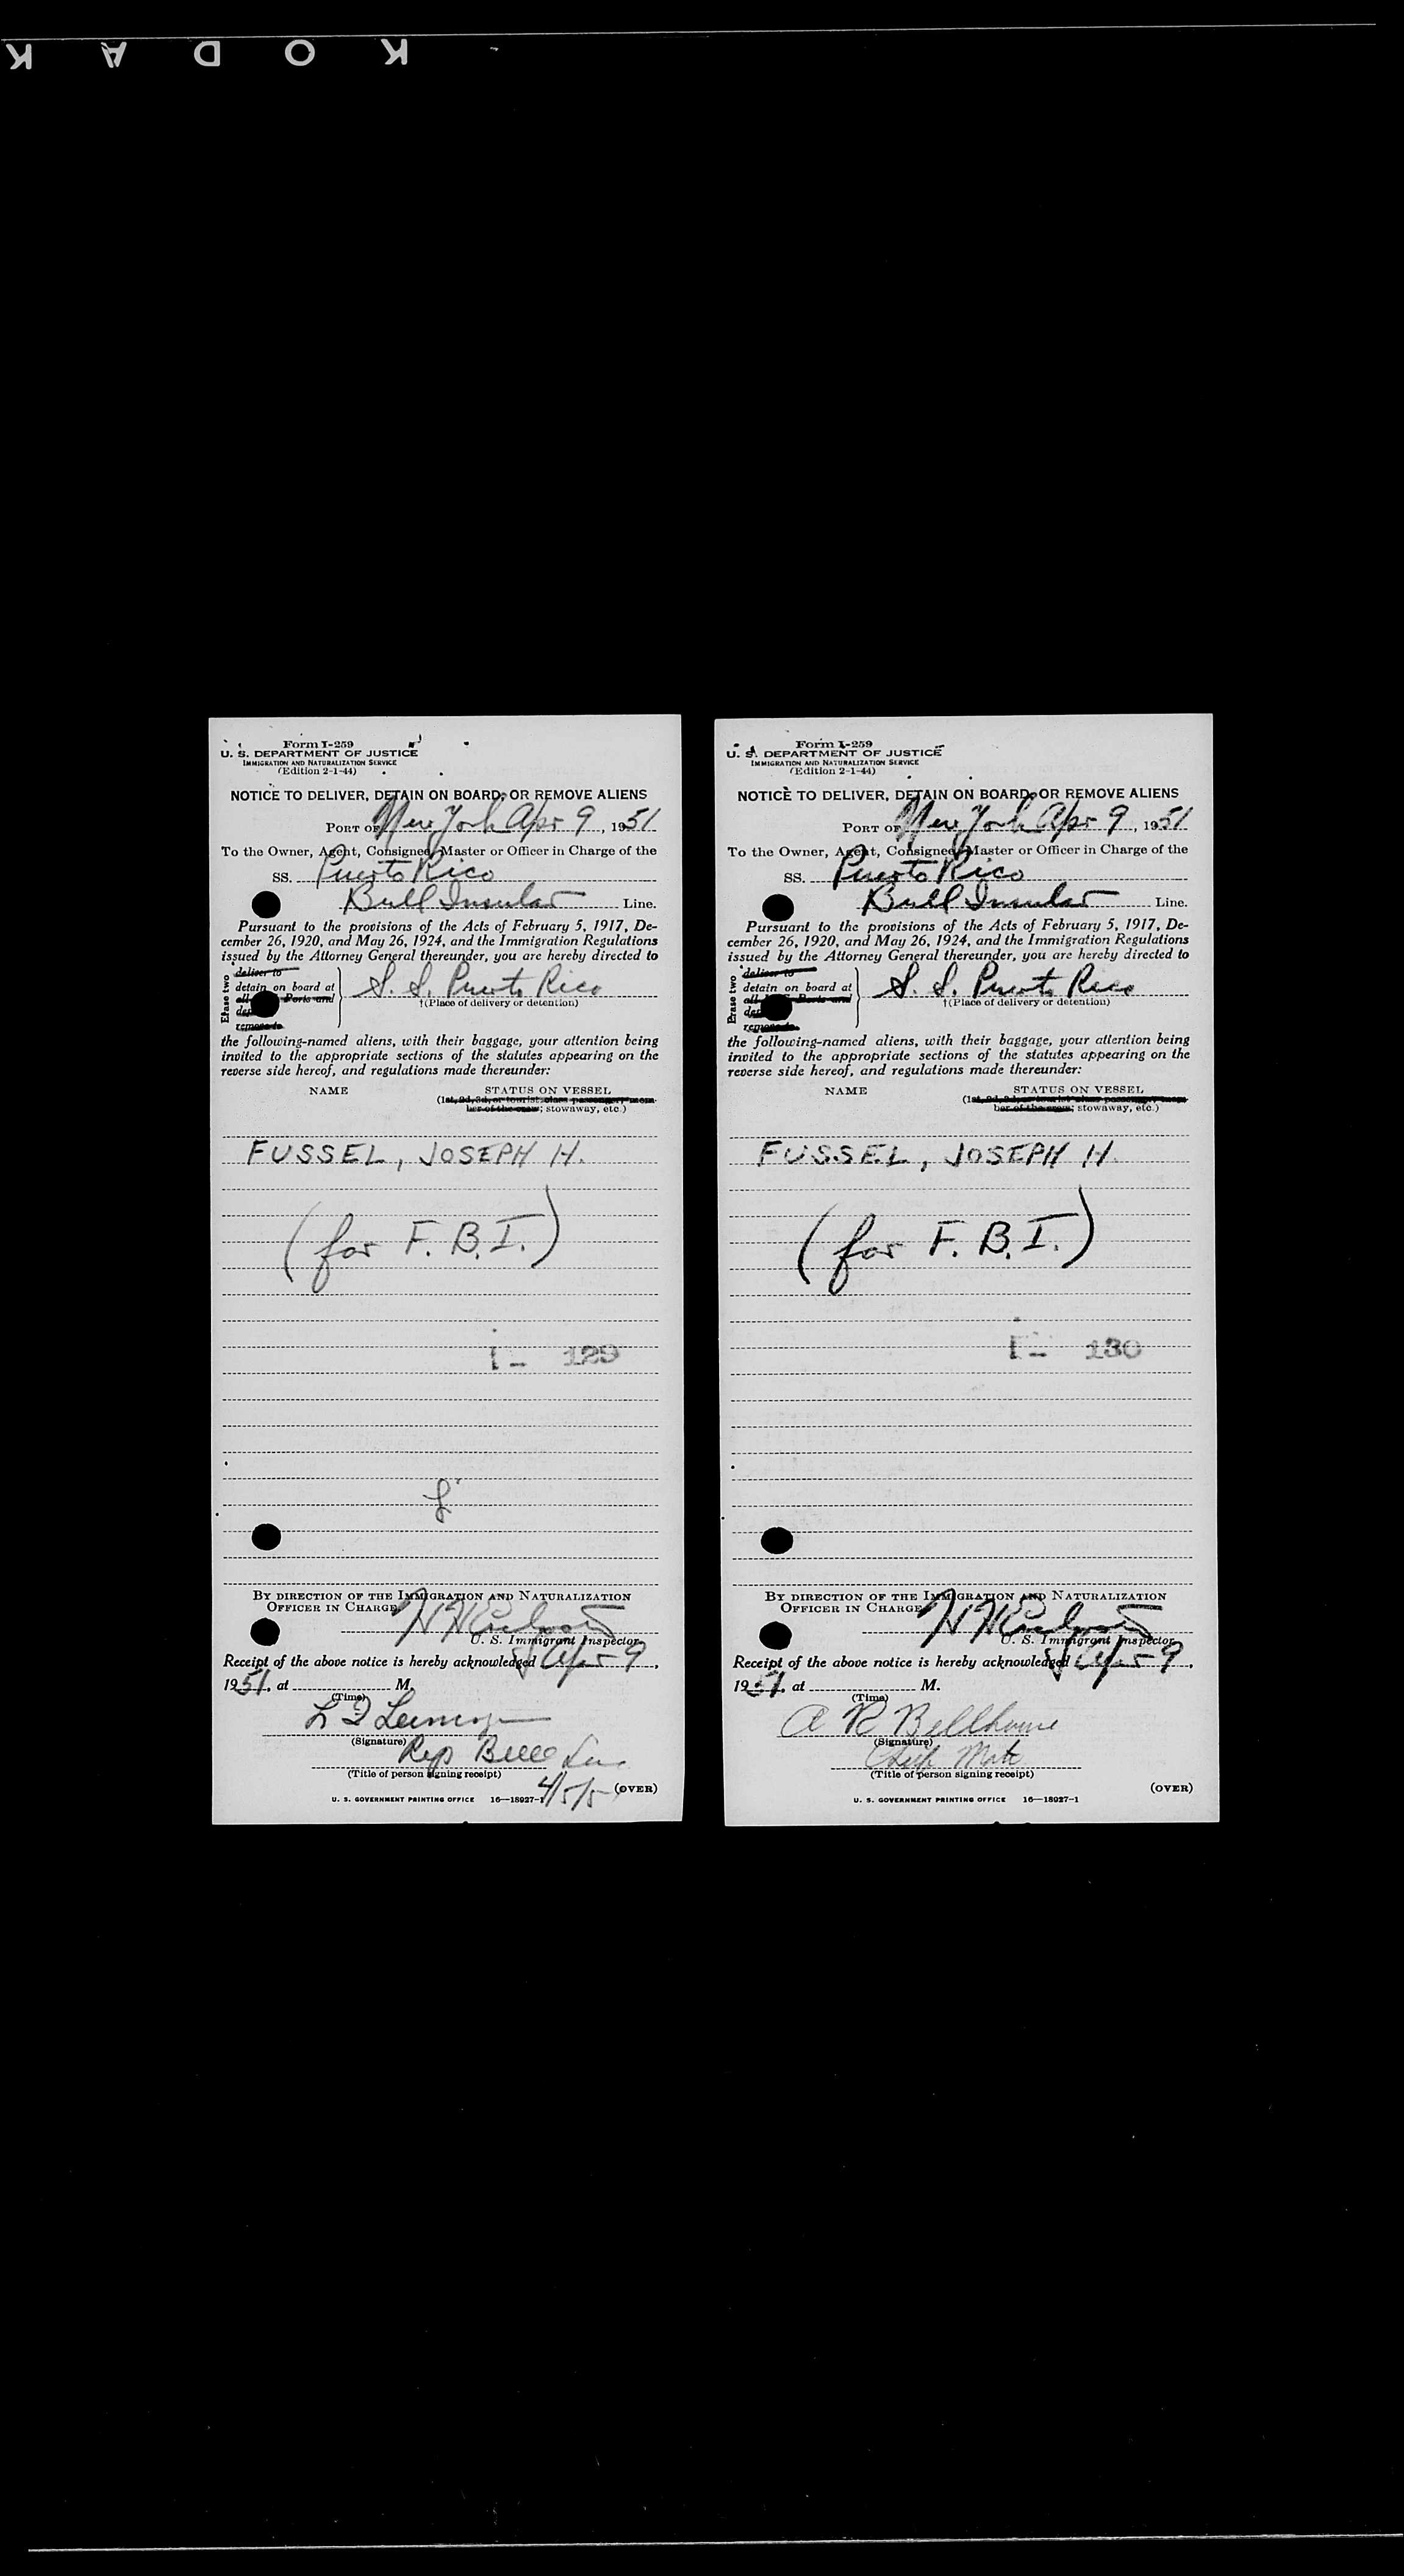 KODAK
Form I-259
U. S. DEPARTMENT OF JUSTICE
IMMIGRATION AND NATURALIZATION SERVICE
(Edition 2-1-44)
NOTICE TO DELIVER, DETAIN ON BOARD, OR REMOVE ALIENS
PORT OF New York Apr 9, 1951
To the Owner, Agent, Consignee, Master or Officer in Charge of the
SS. Puerto Rico
Bull Insular Line.
Pursuant to the provisions of the Acts of February 5, 1917, De-
cember 26, 1920, and May 26, 1924, and the Immigration Regulations
issued by the Attorney General thereunder, you are hereby directed to
Erase two
deliver to
detain on board at
all Ports and
remove to
S. S. Puerto Rico
†(Place of delivery or detention)
the following-named aliens, with their baggage, your attention being
invited to the appropriate sections of the statutes appearing on the
reverse side hereof, and regulations made thereunder:
NAME STATUS ON VESSEL
(1st, 2d, 3d, or tourist class passenger, mem-
ber of the crew; stowaway, etc.)
FUSSEL, JOSEPH H.
(for F. B. I.)
I- 129
BY DIRECTION OF THE IMMIGRATION AND NATURALIZATION
OFFICER IN CHARGE,
U. S. Immigrant Inspector
Receipt of the above notice is hereby acknowledged Apr 9,
1951, at M.
(Time)
(Signature)
Rep Bull
(Title of person signing receipt)
(OVER)
U. S. GOVERNMENT PRINTING OFFICE 16—18927-1
Form I-259
U. S. DEPARTMENT OF JUSTICE
IMMIGRATION AND NATURALIZATION SERVICE
(Edition 2-1-44)
NOTICE TO DELIVER, DETAIN ON BOARD, OR REMOVE ALIENS
PORT OF New York Apr 9, 1951
To the Owner, Agent, Consignee, Master or Officer in Charge of the
SS. Puerto Rico
Bull Insular Line.
Pursuant to the provisions of the Acts of February 5, 1917, De-
cember 26, 1920, and May 26, 1924, and the Immigration Regulations
issued by the Attorney General thereunder, you are hereby directed to
Erase two
deliver to
detain on board at
all Ports and
remove to
S. S. Puerto Rico
†(Place of delivery or detention)
the following-named aliens, with their baggage, your attention being
invited to the appropriate sections of the statutes appearing on the
reverse side hereof, and regulations made thereunder:
NAME STATUS ON VESSEL
(1st, 2d, 3d, or tourist class passenger, mem-
ber of the crew; stowaway, etc.)
FUSSEL, JOSEPH H.
(for F. B. I.)
I- 130
BY DIRECTION OF THE IMMIGRATION AND NATURALIZATION
OFFICER IN CHARGE,
U. S. Immigrant Inspector
Receipt of the above notice is hereby acknowledged Apr 9,
1951, at M.
(Time)
A R Bellhouse
(Signature)
Chief Mate
(Title of person signing receipt)
(OVER)
U. S. GOVERNMENT PRINTING OFFICE 16—18927-1